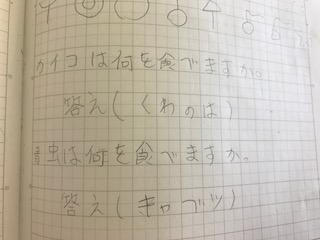 カイコは何を食べますか。
答え(くわのは)
青虫は何を食べますか。
答え(キャベツ)